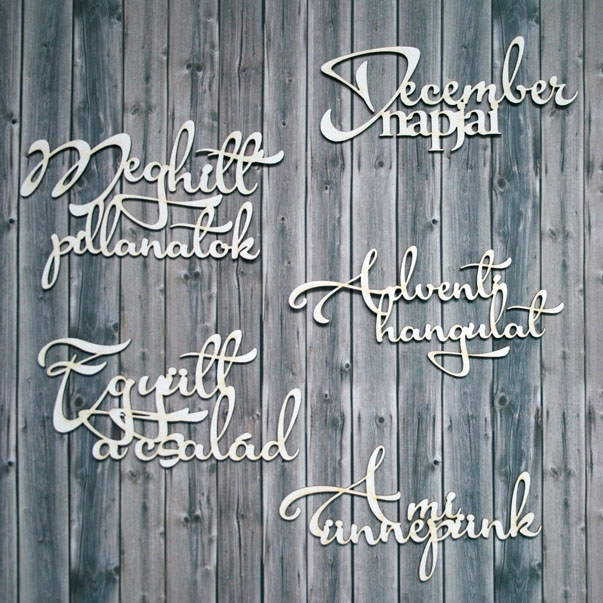 December
napjai
Meghitt
pillanatok
Adventi
hangulat
Együtt
a család
A mi
ünnepünk